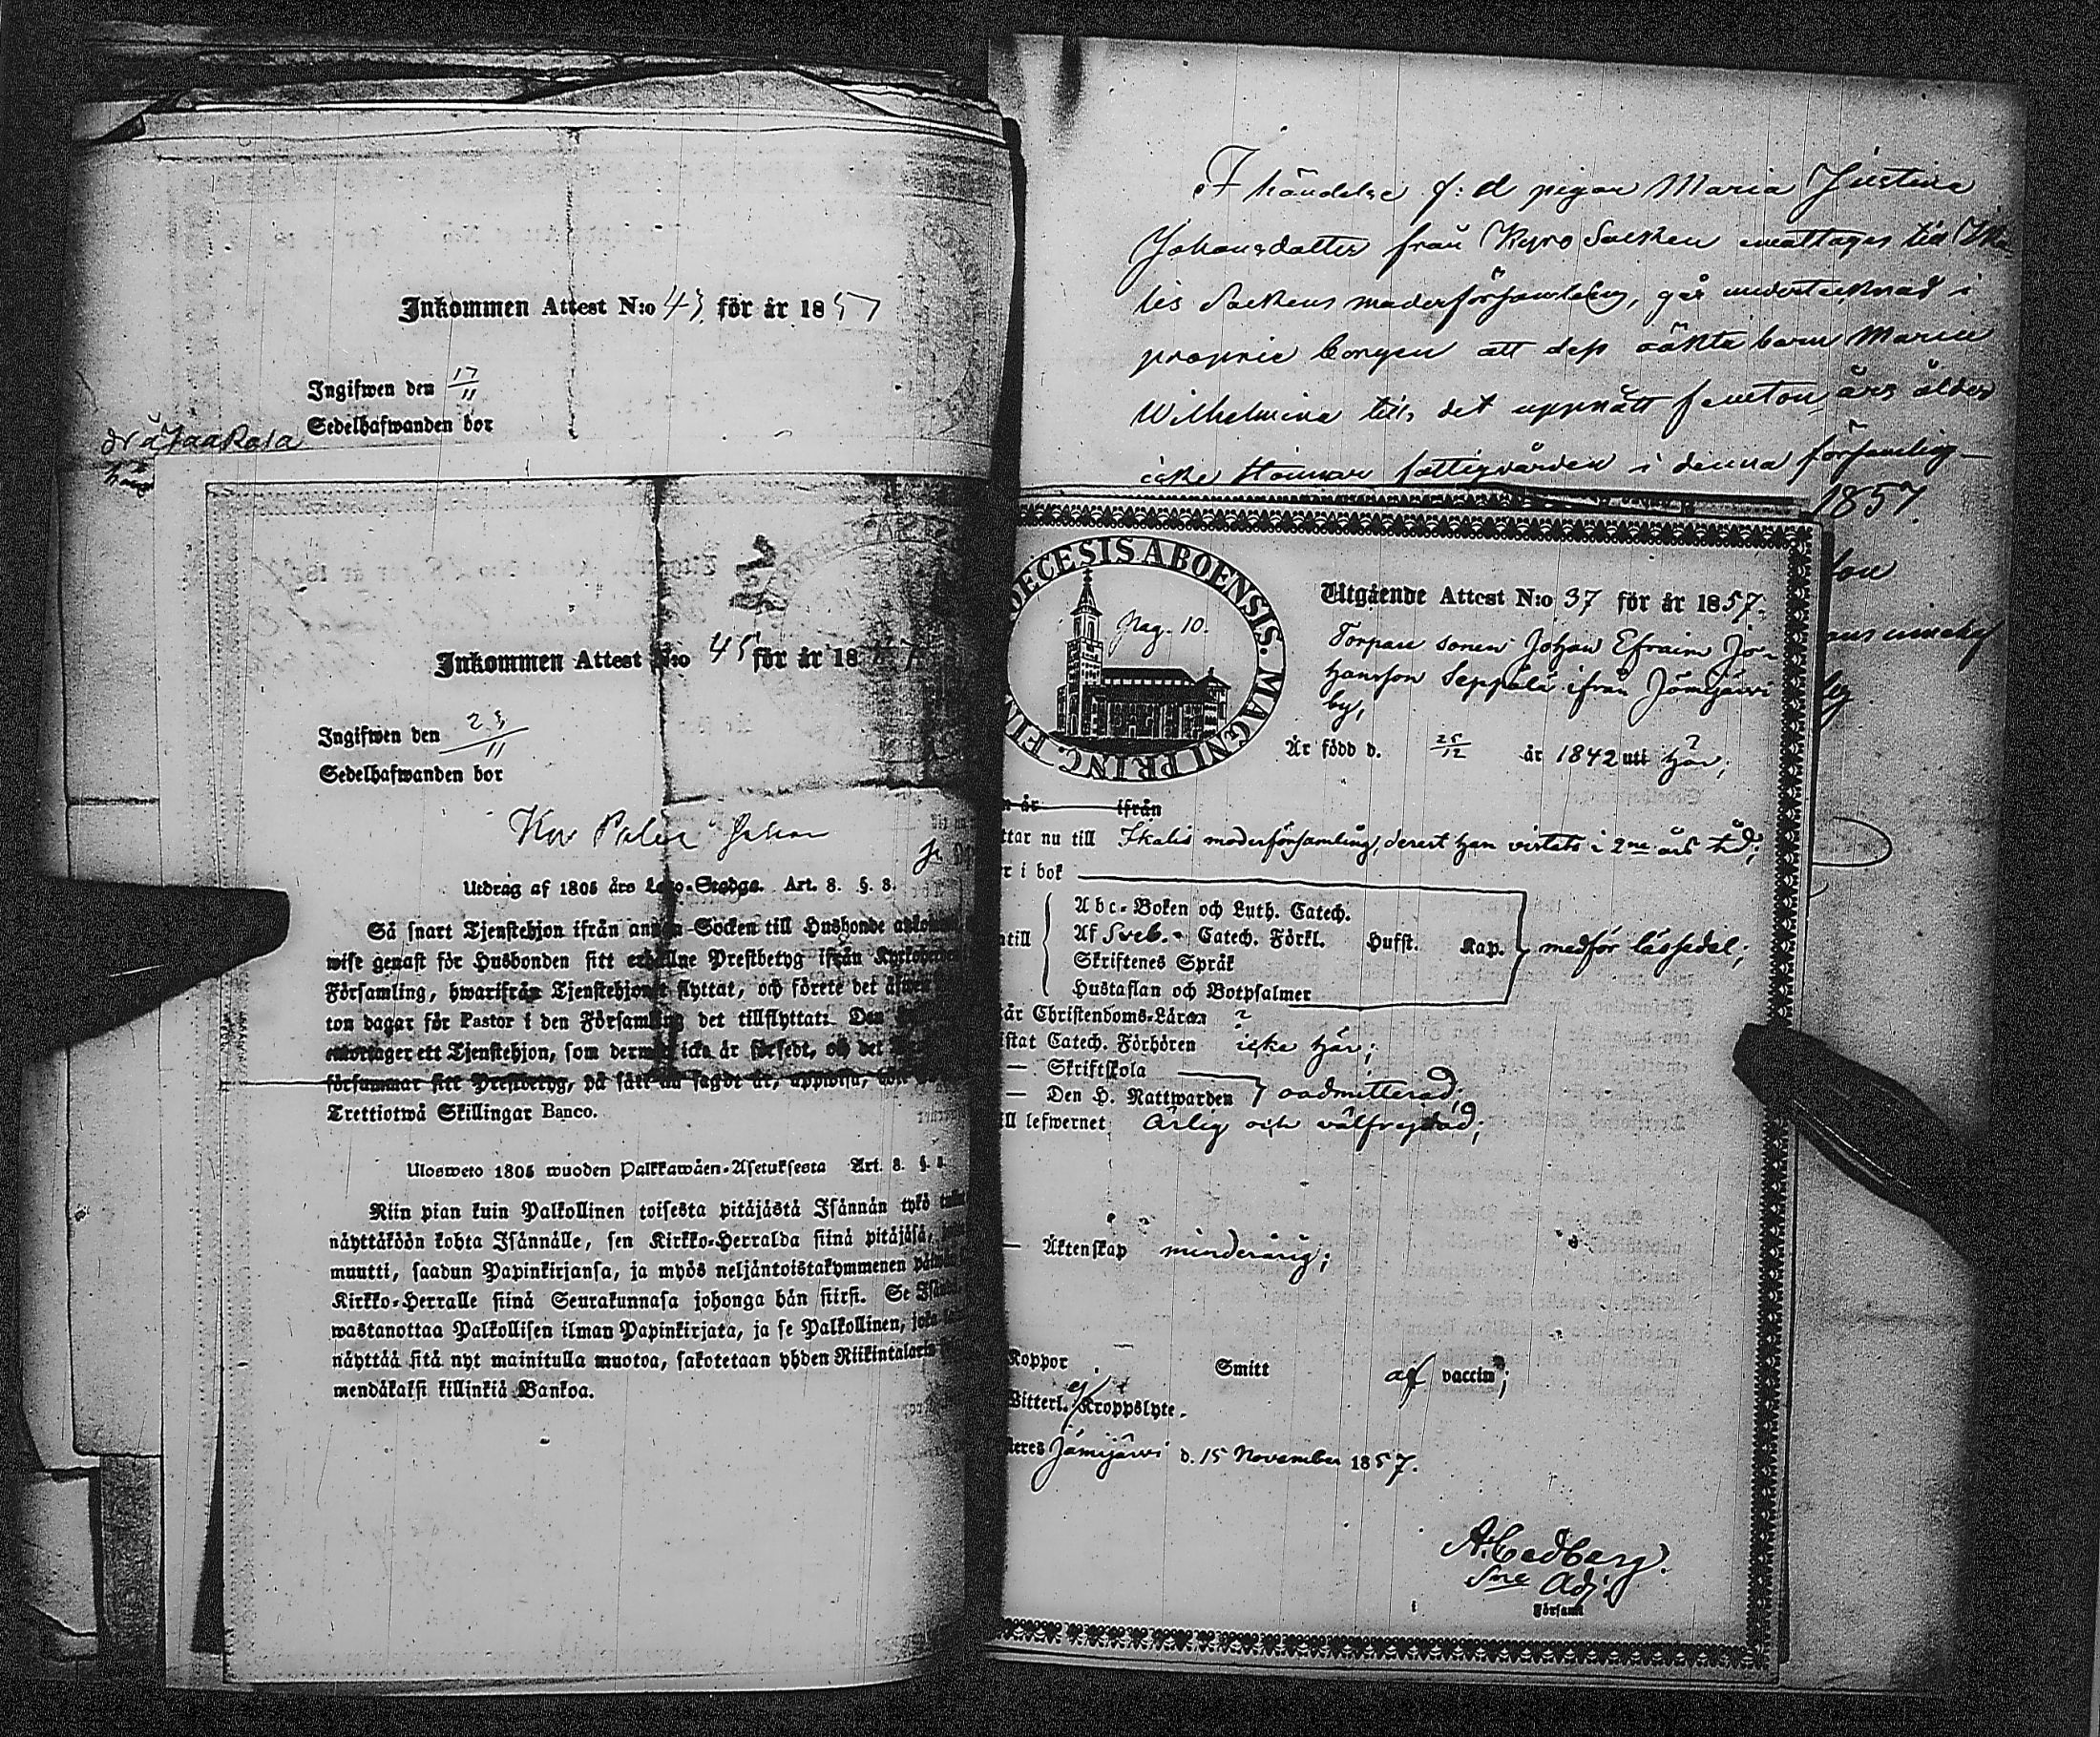 Inkommen Attest N:o 43 för år 1857
Ingifwen den 17/11
Sedelhafwanden bor
Inkommen Attest N:o 45 för år 18
Ingifwen den 23/11
Sedelhafwanden bor
Utdrag af 1805 års Lego-Stadga. Art. 8. §. 8.
Så snart Tjenstehjon ifrån annan Socken till Husbonde
wise genast för Husbonden sitt erhållne Prestbetyg ifrån
Församling, hwarifrån Tjenstehjonet flyttat, och förete det
ton dagar för Pastor i den Församling det tillflyttat. Den
emottager ett Tjenstehjon, som dermed icke är försedt, och det
försummar sitt Prestbetyg, på sätt nu sagdt är, uppwisa,
Trettiotwå Skillingar Banco.
Ulosweto 1805 wuoden Palkkawäen-Asetuksesta Art. 8. §. 8.
Niin pian kuin Palkollinen toisesta pitäjästä Isännän tykö
näyttäköön kohta Isännälle, sen Kirkko-Herralda siinä pitäjäsä,
muutti, saadun Papinkirjansa, ja myös neljäntoistakymmenen
Kirkko-Herralle siinä Seurakunnasa johonga hän siirsi. Se
wastanottaa Palkollisen ilman Papinkirjata, ja se Palkollinen, joka
näyttää sitä nyt mainitulla muotoa, sakotetaan yhden Riikintalarin
mendäkaksi killinkiä Bankoa.
I händelse f: d pigan Maria Justina
Johansdotter från Kyro Socken emottages till Ika-
lis Sockens moderförsamling, går undertecknad i
proprie borgen att dess oäkta barn Maria
Wilhelmina tills det uppnått femton års ålder
icke stannar fattigvården i denna församling
1857.
DIOECESIS ABOENSIS. MAGNI PRINC. FIN
Pag. 10.
Utgående Attest N:o 37 för år 1857.
Torpare sonen Johan Efraim Jo-
hansson Seppälä ifrån Jämijärvi
by,
Är född d. 25/12 år 1842 uti här;
n år ifrån
ttar nu till Ikalis moderförsamling, derest han vistats i 2ne års tid;
r i bok
Abc-Boken och Luth. Catech.
Af Sveb. Catech. Förkl. Hufst. Kap.
Skriftenes Språk
Hustaflan och Botpsalmer
ntill
medför läsesedel;
är Christendoms-Läran
istat Catech. Förhören icke här;
— Skriftskola
— Den H. Nattwarden oadmitterad;
ill lefwernet Ärlig och välfrejdad;
— Äktenskap minderårig;
Koppor Smitt af vaccin;
Witterl. ej Kroppslyte.
teres Jämijärvi d. 15 November 1857.
A. Cedberg.
Sne Adj.
Församl